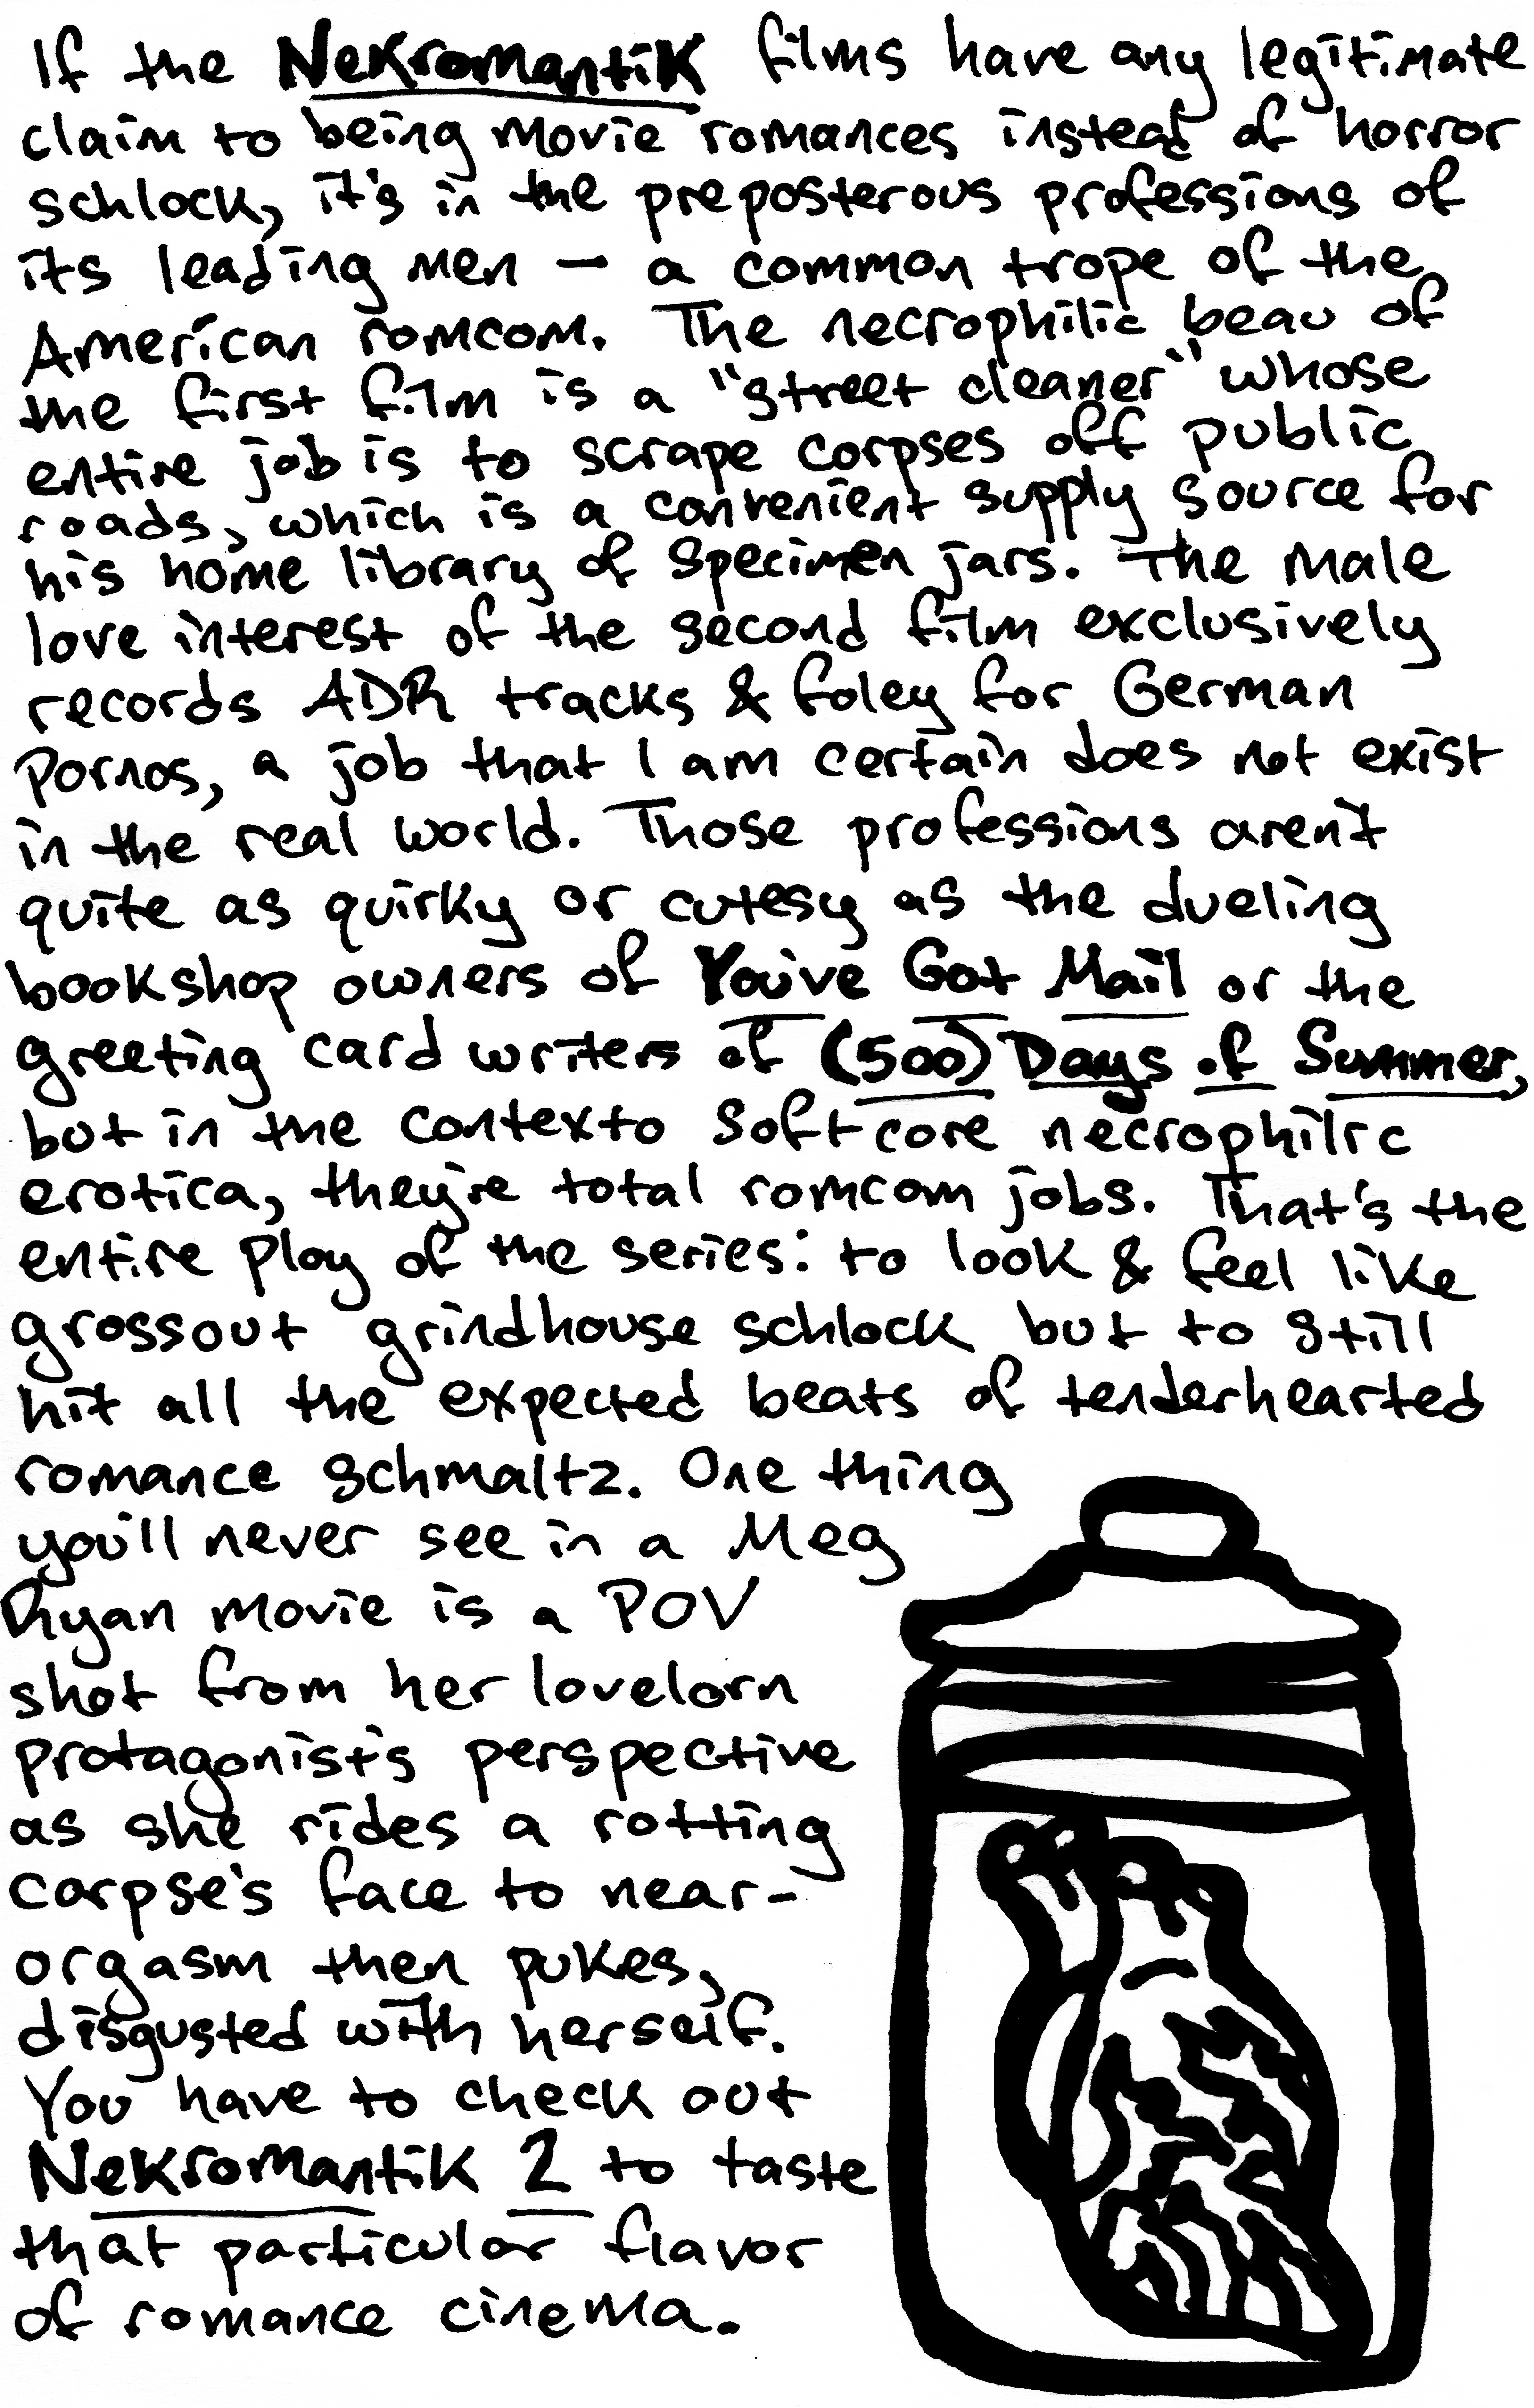 If the Nekromantik films have any legitimate
claim to being movie romances instead of horror
schlock, it's in the preposterous professions of
its leading men — a common trope of the
American romcom. The necrophilic beau of
the first film is a "street cleaner" whose
entire job is to scrape corpses off public
roads, which is a convenient supply source for
his home library of specimen jars. The male
love interest of the second film exclusively
records ADR tracks & foley for German
Pornos, a job that I am certain does not exist
in the real world. Those professions aren't
quite as quirky or cutesy as the dueling
bookshop owners of You've Got Mail or the
greeting card writers of (500) Days of Summer,
but in the contexto softcore necrophilic
erotica, they're total romcom jobs. That's the
entire ploy of the series: to look & feel like
grossout grindhouse schlock but to still
hit all the expected beats of tenderhearted
romance schmaltz. One thing
you'll never see in a Meg
Ryan movie is a POV
shot from her lovelorn
protagonist's perspective
as she rides a rotting
corpse's face to near-
orgasm then pukes,
disgusted with herself.
You have to check out
Nekromantik 2 to taste
that particular flavor
of romance cinema.